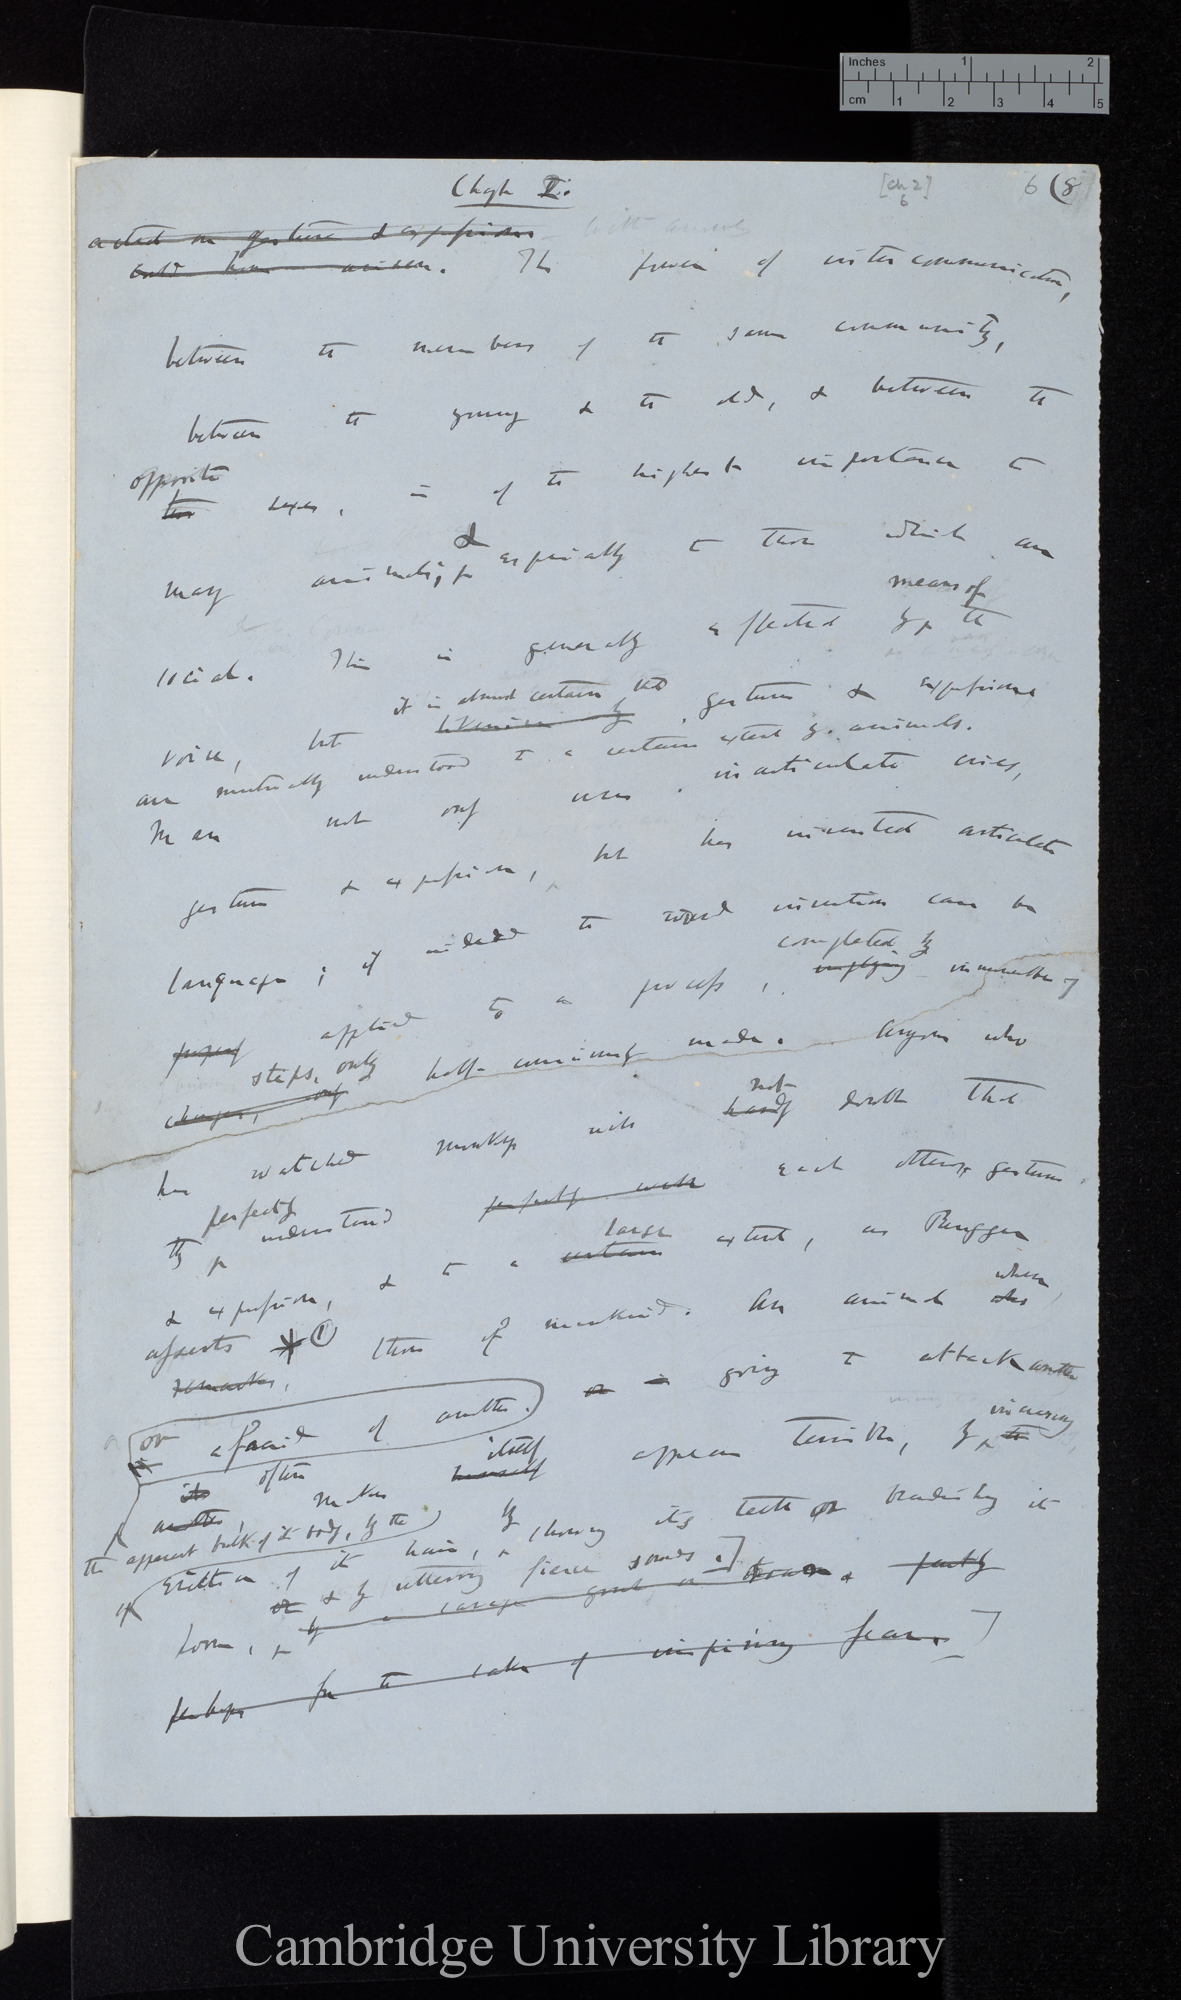 Inches 1 2
cm 1 2 3 4 5
Chap II.
[ch 2]
6
6 (8
acted on gesture & expression
could have arisen. The power of intercommunication,
between the members of the same community,
between the young & the old, & between the
opposite
sexes, is of the highest importance to
many animals, & especially to those which are
means of
social. This is generally effected by the
it is almost certain that
voice, but gestures & expressions
are mutually understood to a certain extent by animals.
Man not only uses inarticulate cries,
gestures & expression, but has invented articulate
language; if indeed the word invention can be
completed by
applied to a process, implying innumerable
steps, only half-consciously made. Anyone who
changes, only
not
has watched monkeys will hardly doubt that
perfectly
they understand perfectly well each others gestures
large
& expression, & to a certain extent, as Rengger
when
asserts * (1) those of mankind. An animal
remarks,
or is going to attack another
or afraid of another.
increasing
often itself
another, makes himself appear terrible, by the
the apparent bulk of its body, by the
erection of its hair, by showing its teeth or brandishing its
or & by uttering fierce sounds.]
horns, by a savage growl or & partly
perhaps for the sake of inspiring fear.]
Cambridge University Library